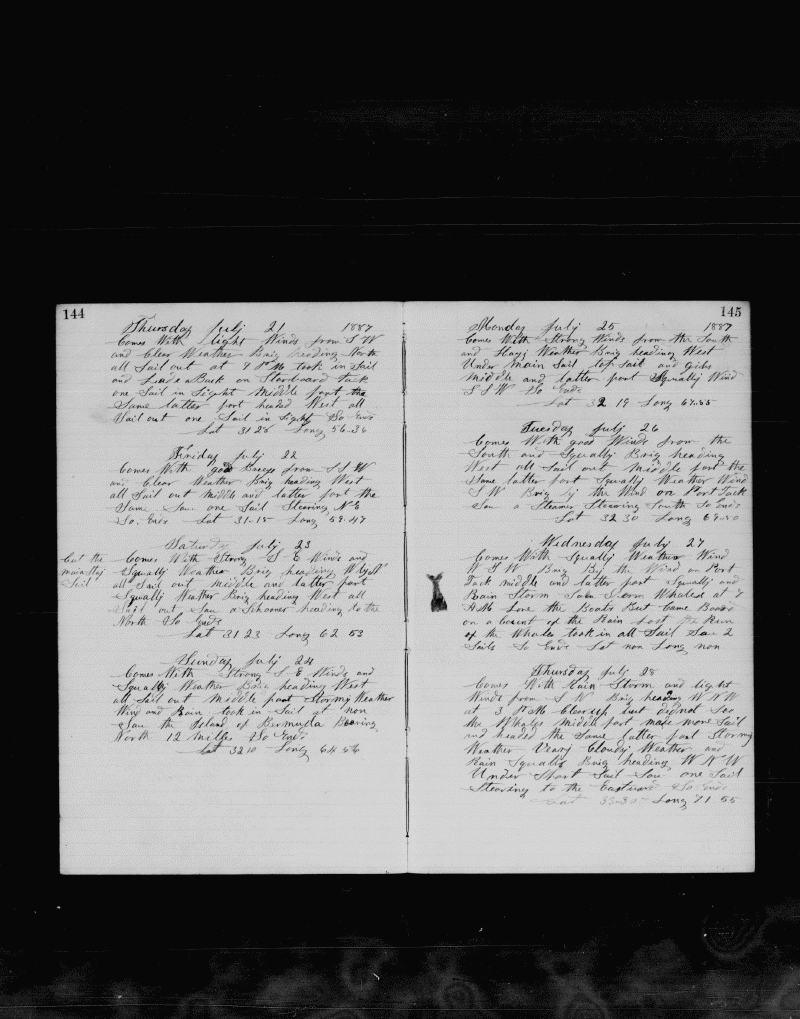 144
Thursday July 21 1887
Comes With Light Winds from S W
and Clear Weather Brig heading North
all Sail out at 7 P M took in Sail
and Luf a Back on Starboard Tack
one Sail in Sight Middle part the
Same latter part headed West all
Sail out one Sail in Sight So Ends
Lat 31 28 Long 56-36
Friday July 22
Comes With good Breeze from S S W
and Clear Weather Brig heading West
all Sail out Middle and latter part the
Same Saw one Sail Stearing N E
So Ends Lat 31-15 Long 59-47
Saturday July 23
but the
main try
Sail
Comes With Strong S E Winds and
Squally Weather Brig heading W by N
all Sail out middle and latter part
Squally Weather Brig heading West all
Sail out Saw a Schooner heading to the
North So Ends
Lat 31 23 Long 62 53
Sunday July 24
Comes With Strong S E Winds and
Squally Weather Brig heading West
all Sail out Middle part Stormy Weather
Wind and Rain took in Sail at non
Saw the Island of Bermuda Bearing
North 12 milles So Ends
Lat 32 10 Long 64 56
145
Monday July 25 1887
Comes With Strong Winds from the South
and Hazy Weather Brig heading West
Under main Sail top Sail and gibs
Middle and latter part Squally Wind
S S W So Ends
Lat 32 19 Long 67-55
Tuesday July 26
Comes With good Winds from the
South and Squally Brig heading
West all Sail out Middle part the
Same latter part Squally Weather Wind
S W Brig by the Wind on Port Tack
Saw a Steamer Stearing South So Ends
Lat 32 30 Long 69-50
Wednesday July 27
Comes With Squally Weather Wind
W S W Brig By the Wind on Port
Tack middle and latter part Squally and
Rain Storm Saw Sperm Whales at 7
A M Lore the Boats But Came Board
on a Count of the Rain Lost the Run
of the Whales took in all Sail Saw 2
Sails So Ends Lat non Long non
Thursday July 28
Comes With Rain Storm and light
Winds from S W Brig heading W N W
at 3 P M Clear up but did not See
the Whales Middle part made more Sail
and headed the Same latter part Stormy
Weather Veary Cloudy Weather and
Rain Squalls Brig heading W N W
Under Short Sail Saw one Sail
Stearing to the Eastward So Ends
Lat 33-30 Long 71 55